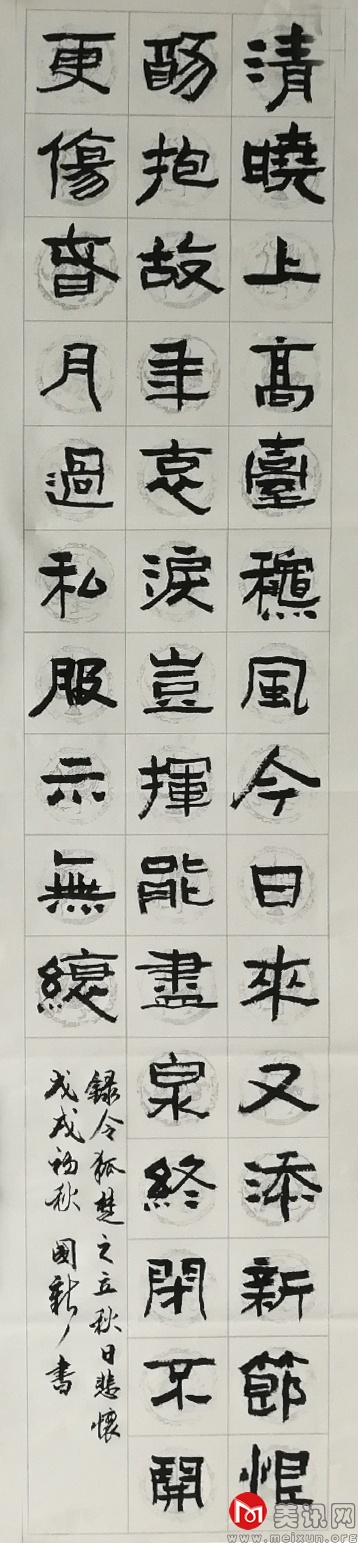 清曉上高臺穐風今日來又添新節恨
抱故年哀淚豈揮能盡泉終閉不開
更傷春月過私服示無縗
錄令狐楚之立秋日悲懷
戊戌初秋 國新書
美讯网
www.meixun.org